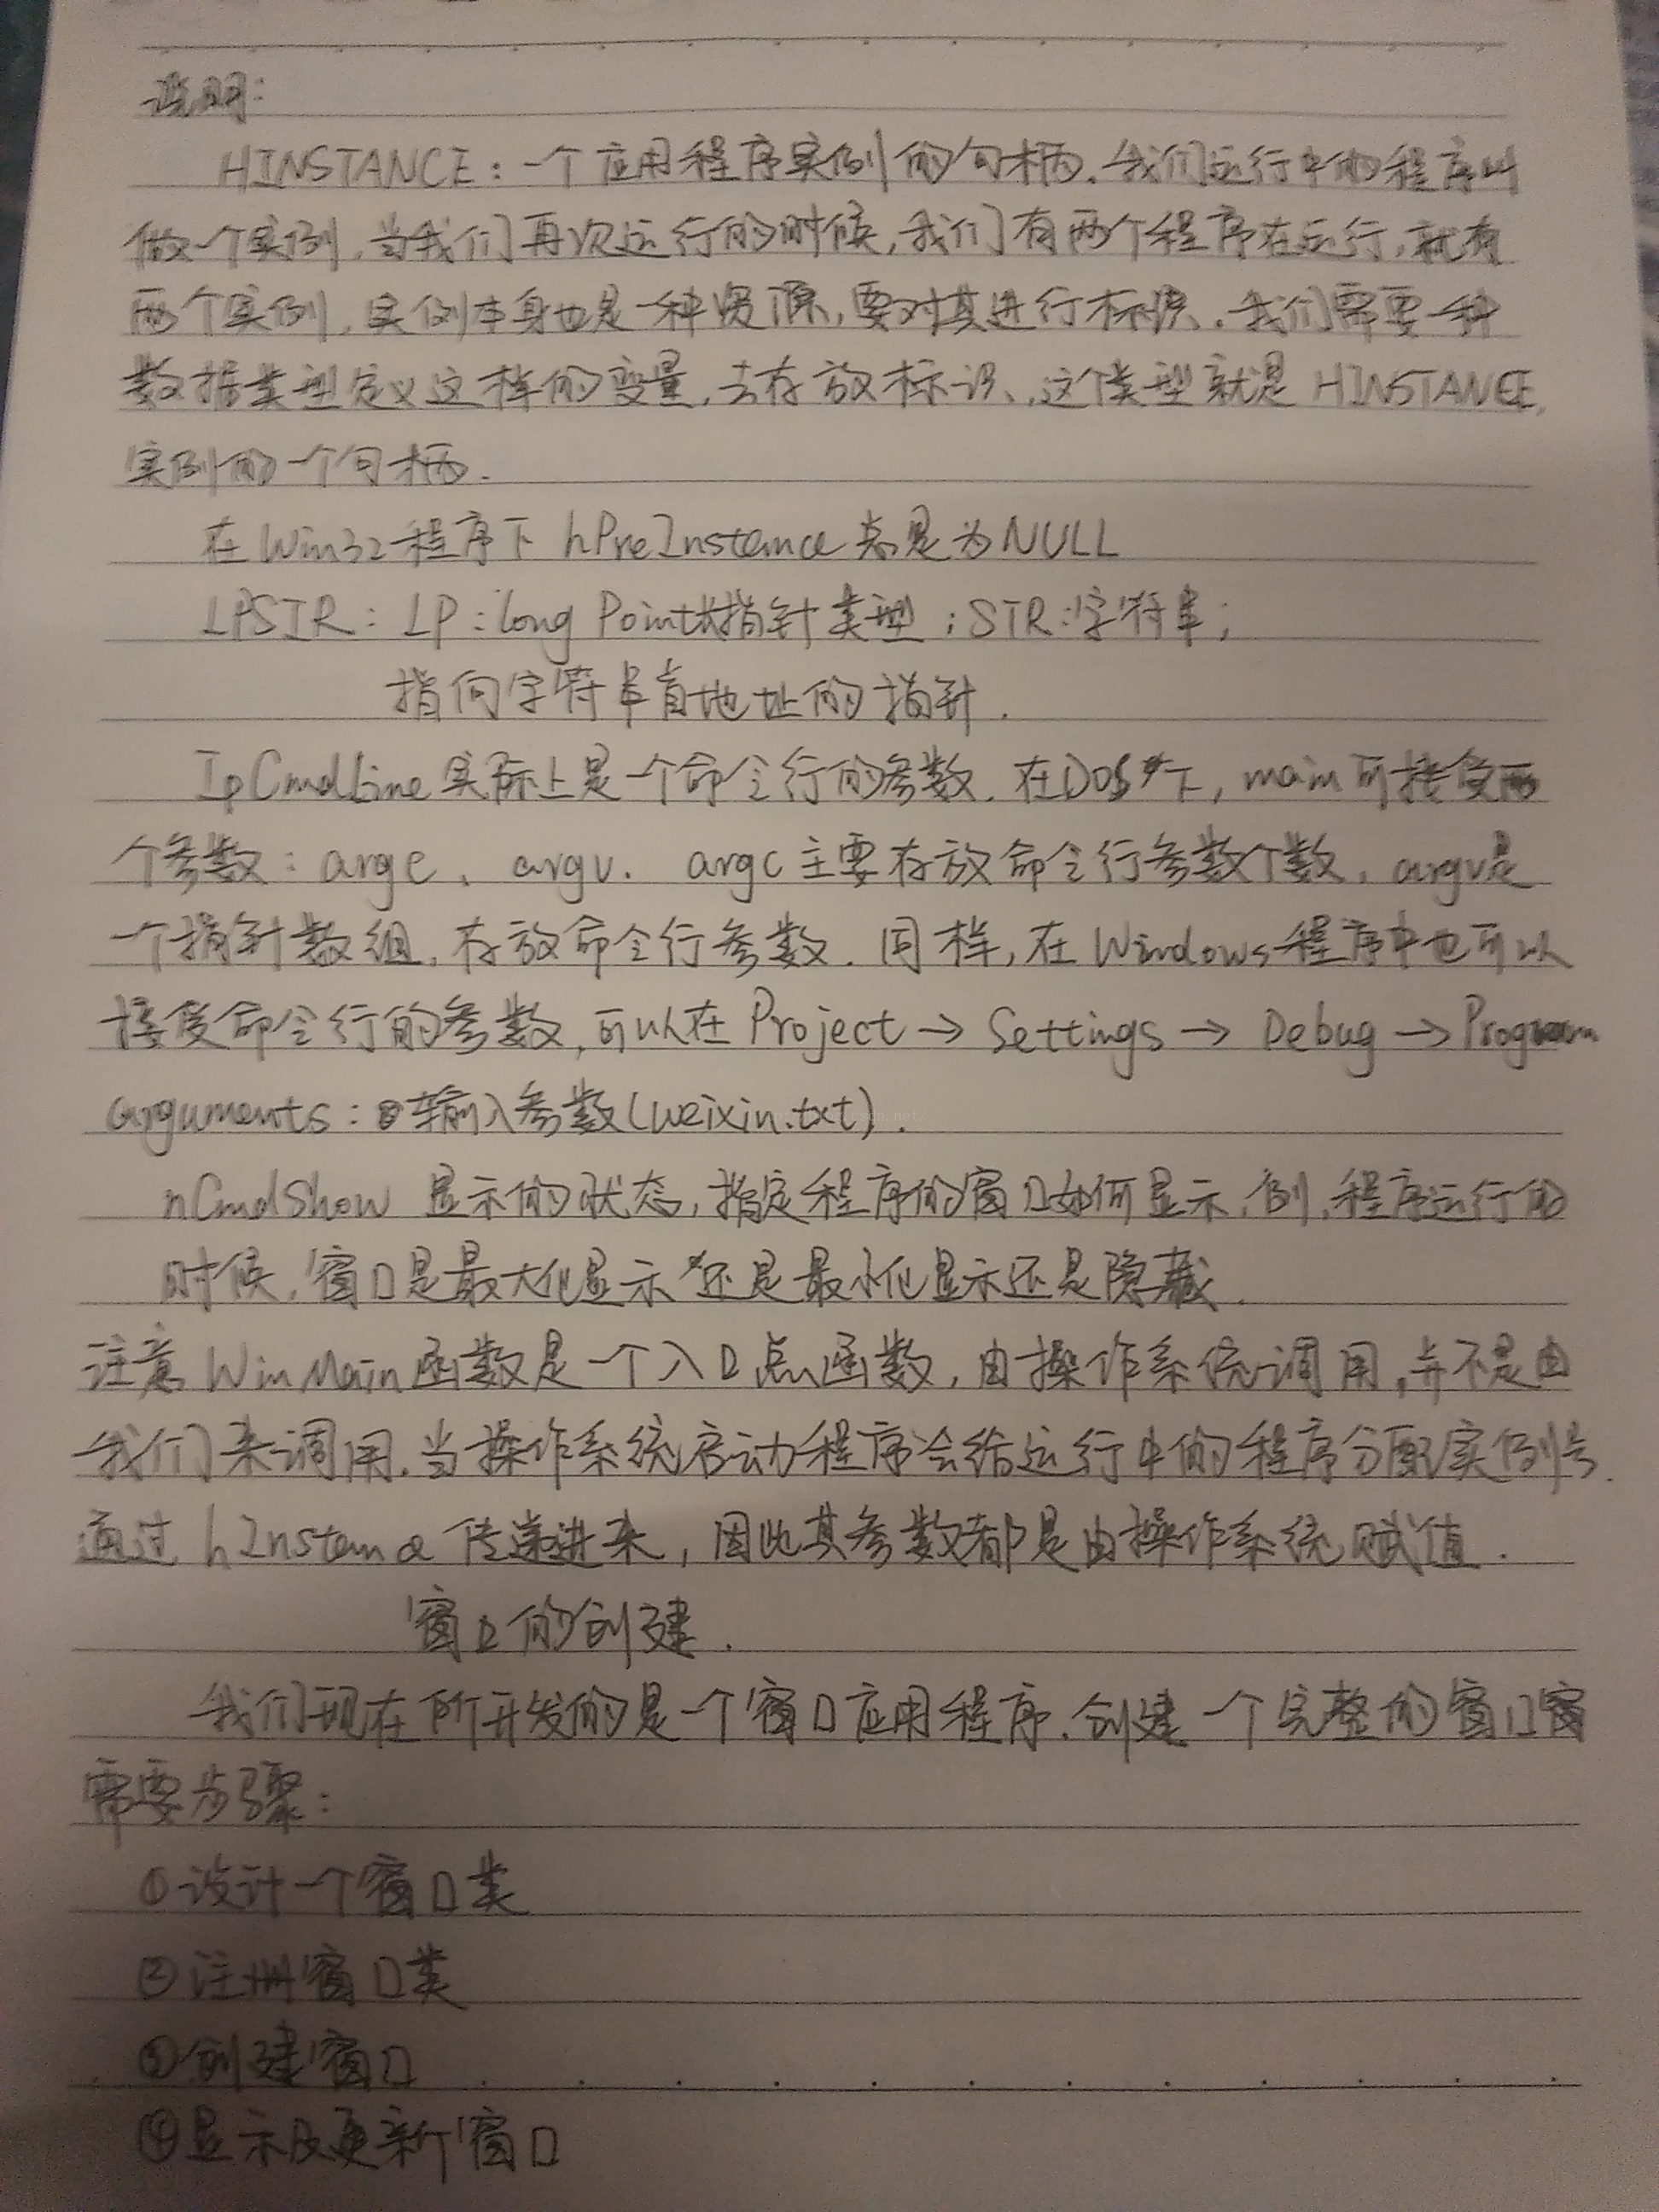 说明:
HINSTANCE: 一个应用程序实例的句柄. 我们运行中的程序叫
做一个实例, 当我们再次运行的时候, 我们有两个程序在运行, 就有
两个实例, 实例本身也是一种资源, 要对其进行标识. 我们需要一种
数据类型定义这样的变量, 去存放标识, 这个类型就是 HINSTANCE,
实例的一个句柄.
在Win32程序下 hPreInstance 总是为NULL
LPSTR: LP: long Point 指针类型; STR: 字符串;
指向字符串首地址的指针.
IpCmdLine 实际上是一个命令行的参数. 在DOS下, main可接受两
个参数: argc、argv. argc主要存放命令行参数个数, argv是
一个指针数组, 存放命令行参数. 同样, 在Windows程序中也可以
接受命令行的参数, 可以在 Project → Settings → Debug → Program
arguments: 输入参数(weixin.txt).
nCmdShow 显示的状态, 指定程序的窗口如何显示, 例, 程序运行的
时候, 窗口是最大化显示还是最小化显示还是隐藏.
注意 WinMain函数是一个入口点函数, 由操作系统调用, 并不是由
我们来调用. 当操作系统启动程序会给运行中的程序分配实例号.
通过 hInstance 传递进来, 因此其参数都是由操作系统赋值.
窗口的创建.
我们现在所开发的是一个窗口应用程序. 创建一个完整的窗口窗
需要步骤:
①设计一个窗口类
②注册窗口类
③创建窗口
④显示及更新窗口